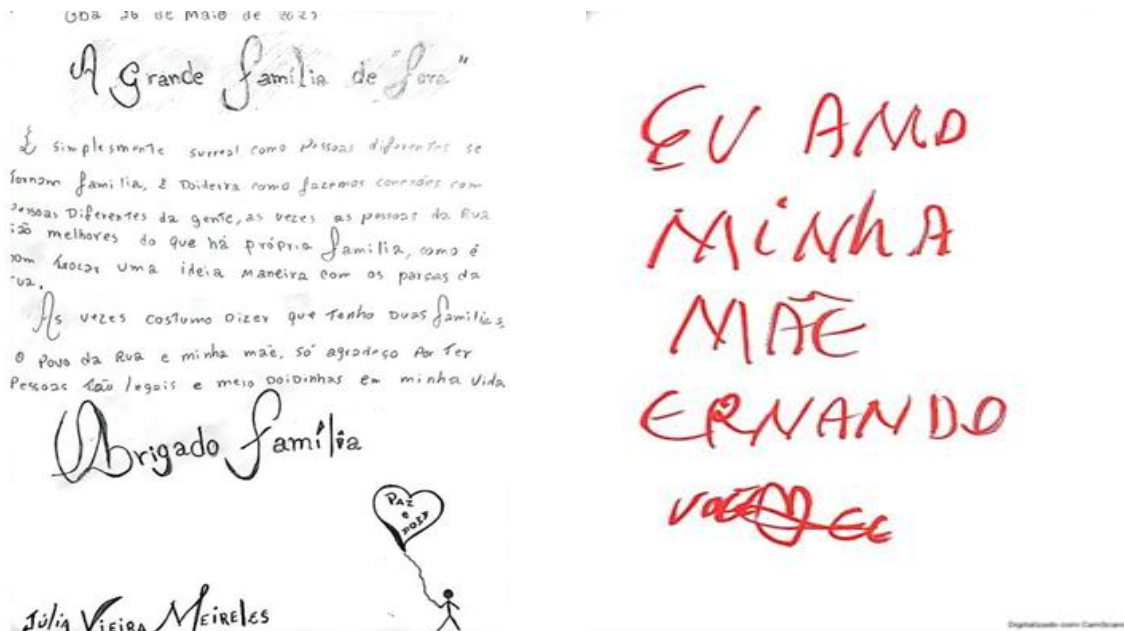 Ubá 26 de Maio de 2023
A Grande família de "fora"
É simplesmente surreal como Pessoas diferentes se
Tornam família, é Doideira como fazemos conexões com
Pessoas Diferentes da gente, as vezes as pessoas da Rua
são melhores do que há própria família, como é
bom trocar uma ideia maneira com os parças da
rua.
As vezes costumo Dizer que Tenho Duas famílias,
o Povo da Rua e minha mãe, só agradeço Por Ter
Pessoas tão legais e meio Doidinhas em minha vida
Obrigado família
PAZ
e
Júlia Vieira Meireles
EU AMO
MINhA
MÃE
ERNANDO
Digitalizado com CamScanner